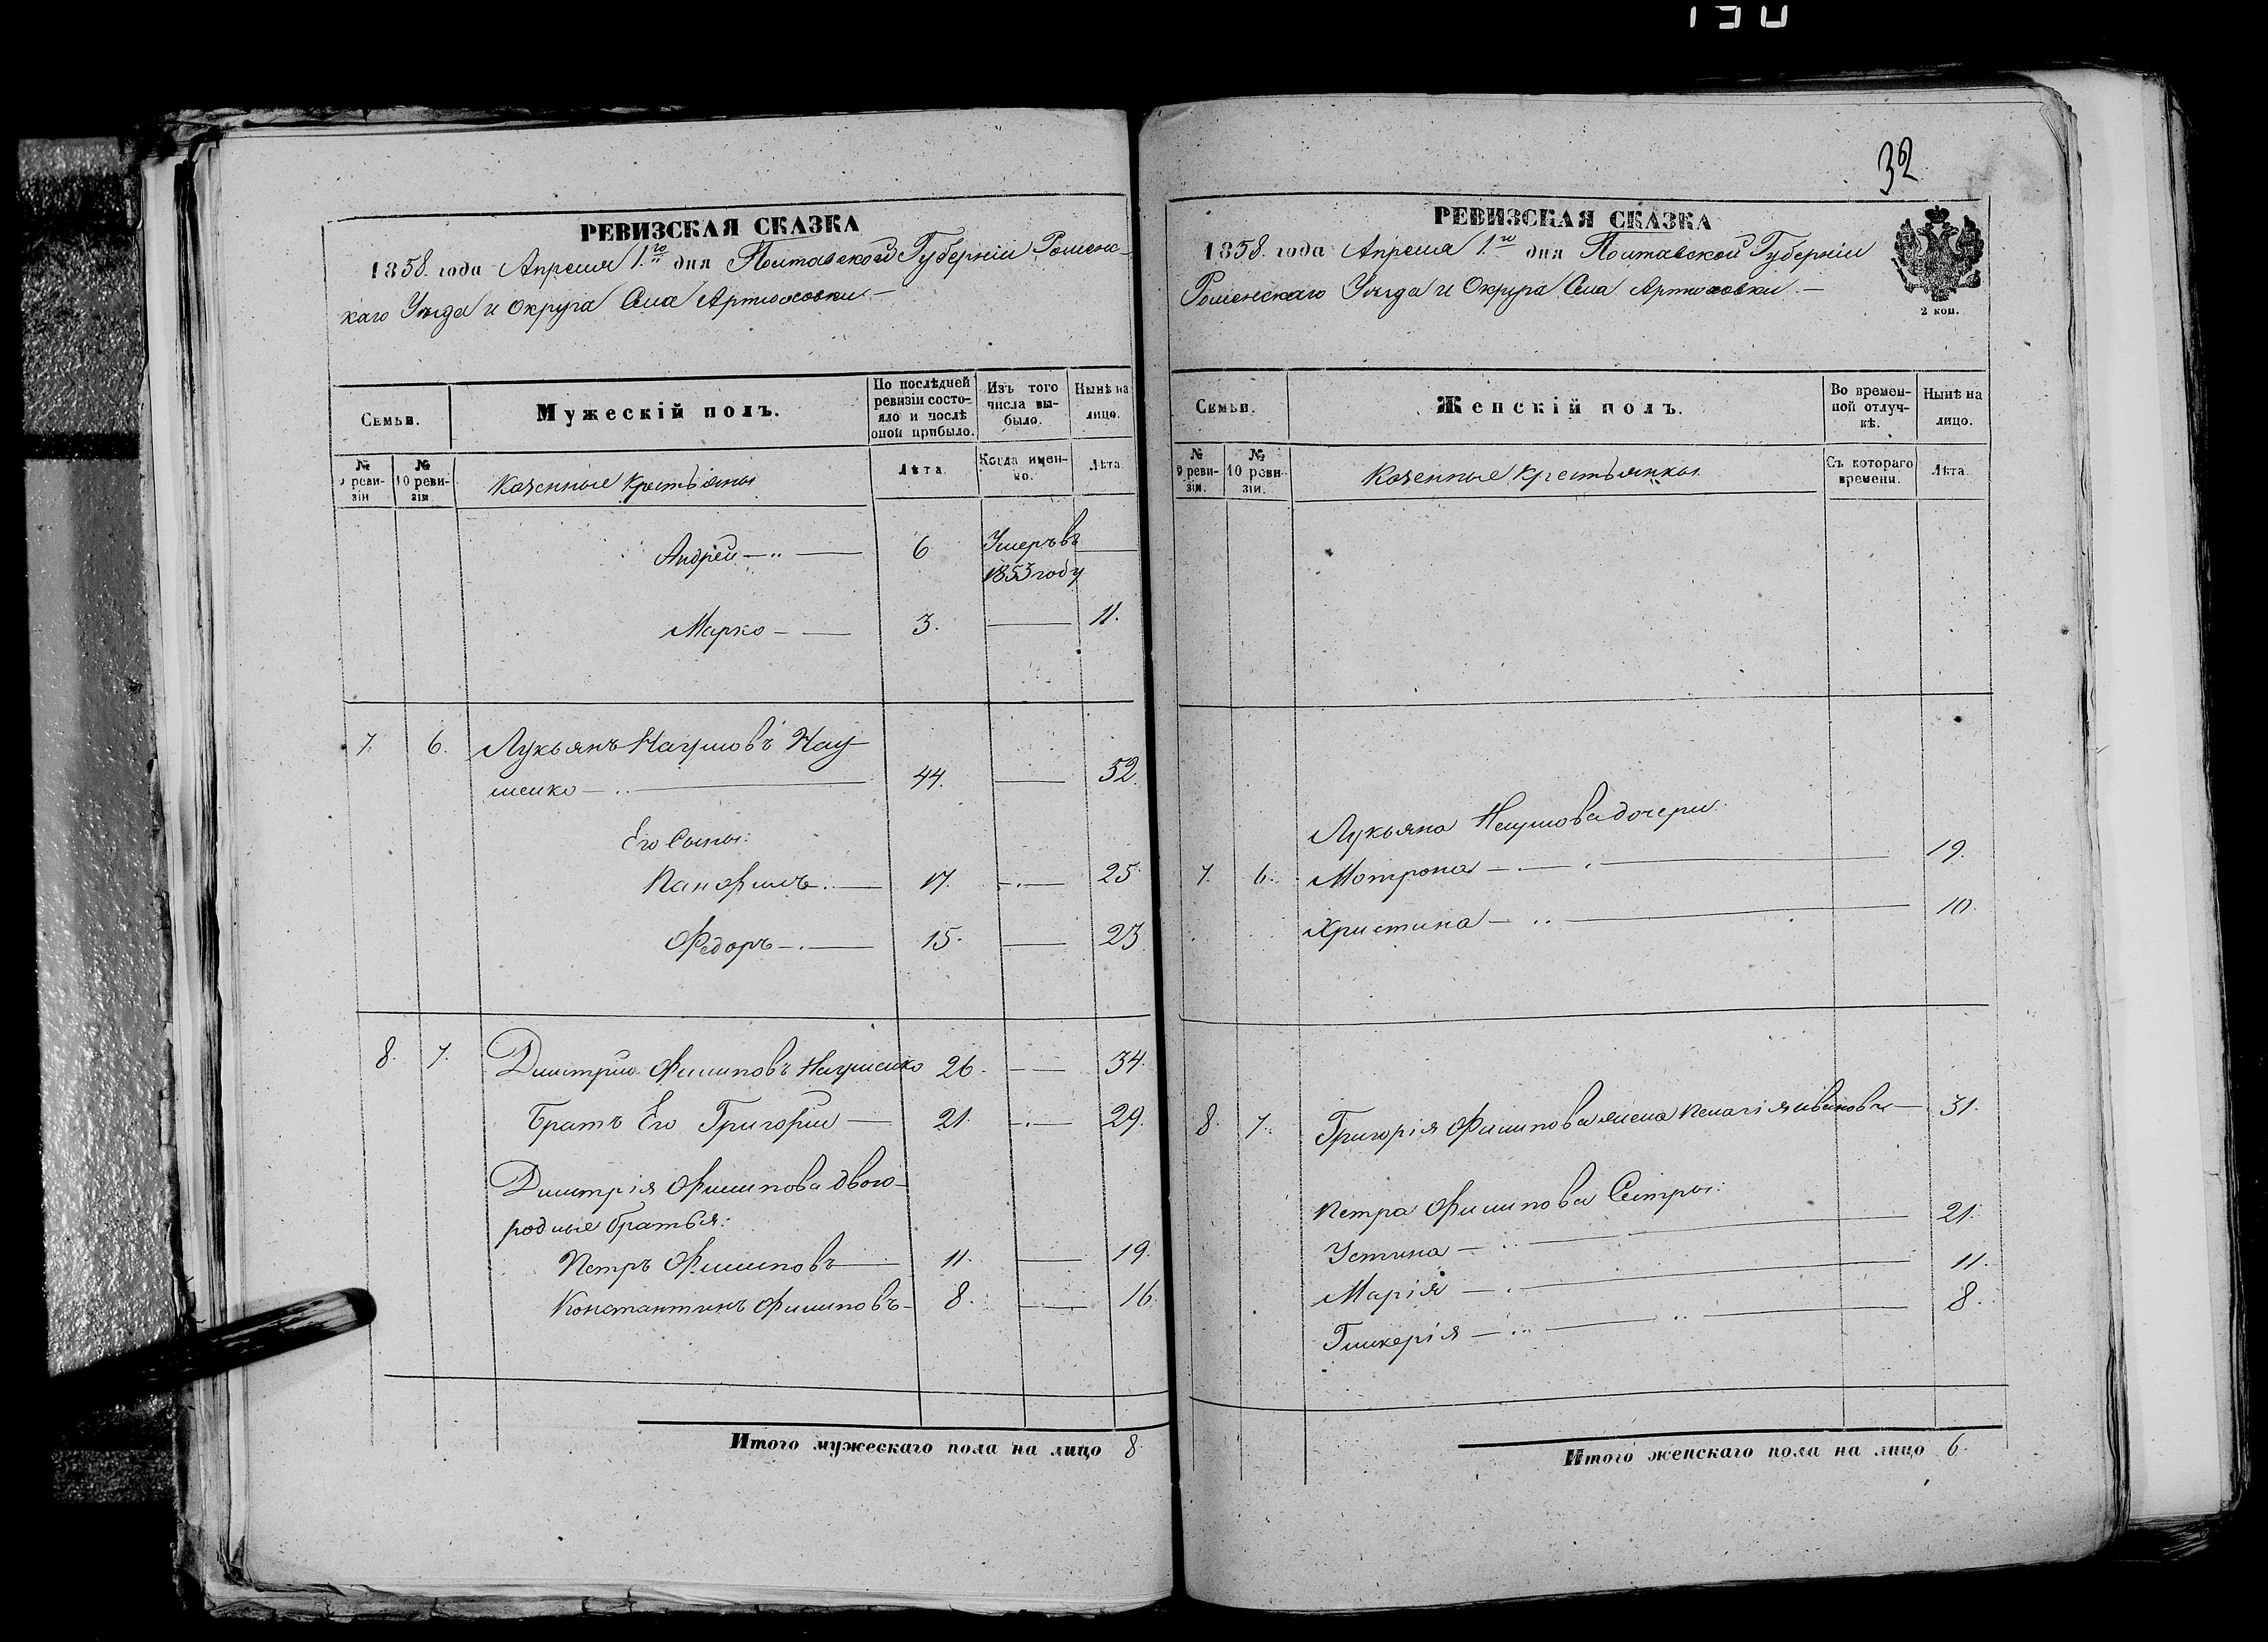 32
РЕВИЗСКАЯ СКАЗКА
1858. года Апреля 1.го дня Полтавской Губерніи Роменс-
каго Уезда и Округа Села Артюховки
Семьи.
Мужескій полъ.
По послѣдней ревизіи состо-яло и послѣ оной прибыло.
Изъ того числа вы-было.
Нынѣ на лицо.
№ 9 реви-зіи
№ 10 реви-зіи
Казенные Крестьяны
Лѣта
Когда имен-но.
Лѣта
Андрей 6 Умеръ въ
1853 году
Марко 3. 11.
7. 6. Лукьянъ Наумовъ Нау-
менко 44. 52.
Его Сыны:
Панфилъ 17. 25.
Федоръ 15. 23
8. 7. Дмитрий Филиповъ Науменко 26. 34.
Братъ Его Григорий 21. 29.
Дмитрія Филипова двою-
родные братья:
Петръ Филиповъ 11. 19.
Константинъ Филиповъ 8. 16.
Итого мужескаго пола на лицо 8.
РЕВИЗСКАЯ СКАЗКА
1858. года Апреля 1.го дня Полтавской Губерніи
Роменскаго Уезда и Округа Села Артюховки.
2 коп.
Семьи.
Женскій полъ.
Во времен-ной отлуч-кѣ.
Нынѣ на лицо.
№ 9 реви-зіи.
№ 10 реви-зіи.
Казенные Крестьянки
Съ котораго времени.
Лѣта
Лукьяна Наумова дочери:
7. 6. Мотрона 19.
Христина 10.
8. 7. Григорія Филипова жена Пелагія Иванова 31.
Петра Филипова Сестры:
Устина 21.
Марія 11.
Гликерія 8.
Итого женскаго пола на лицо 6.